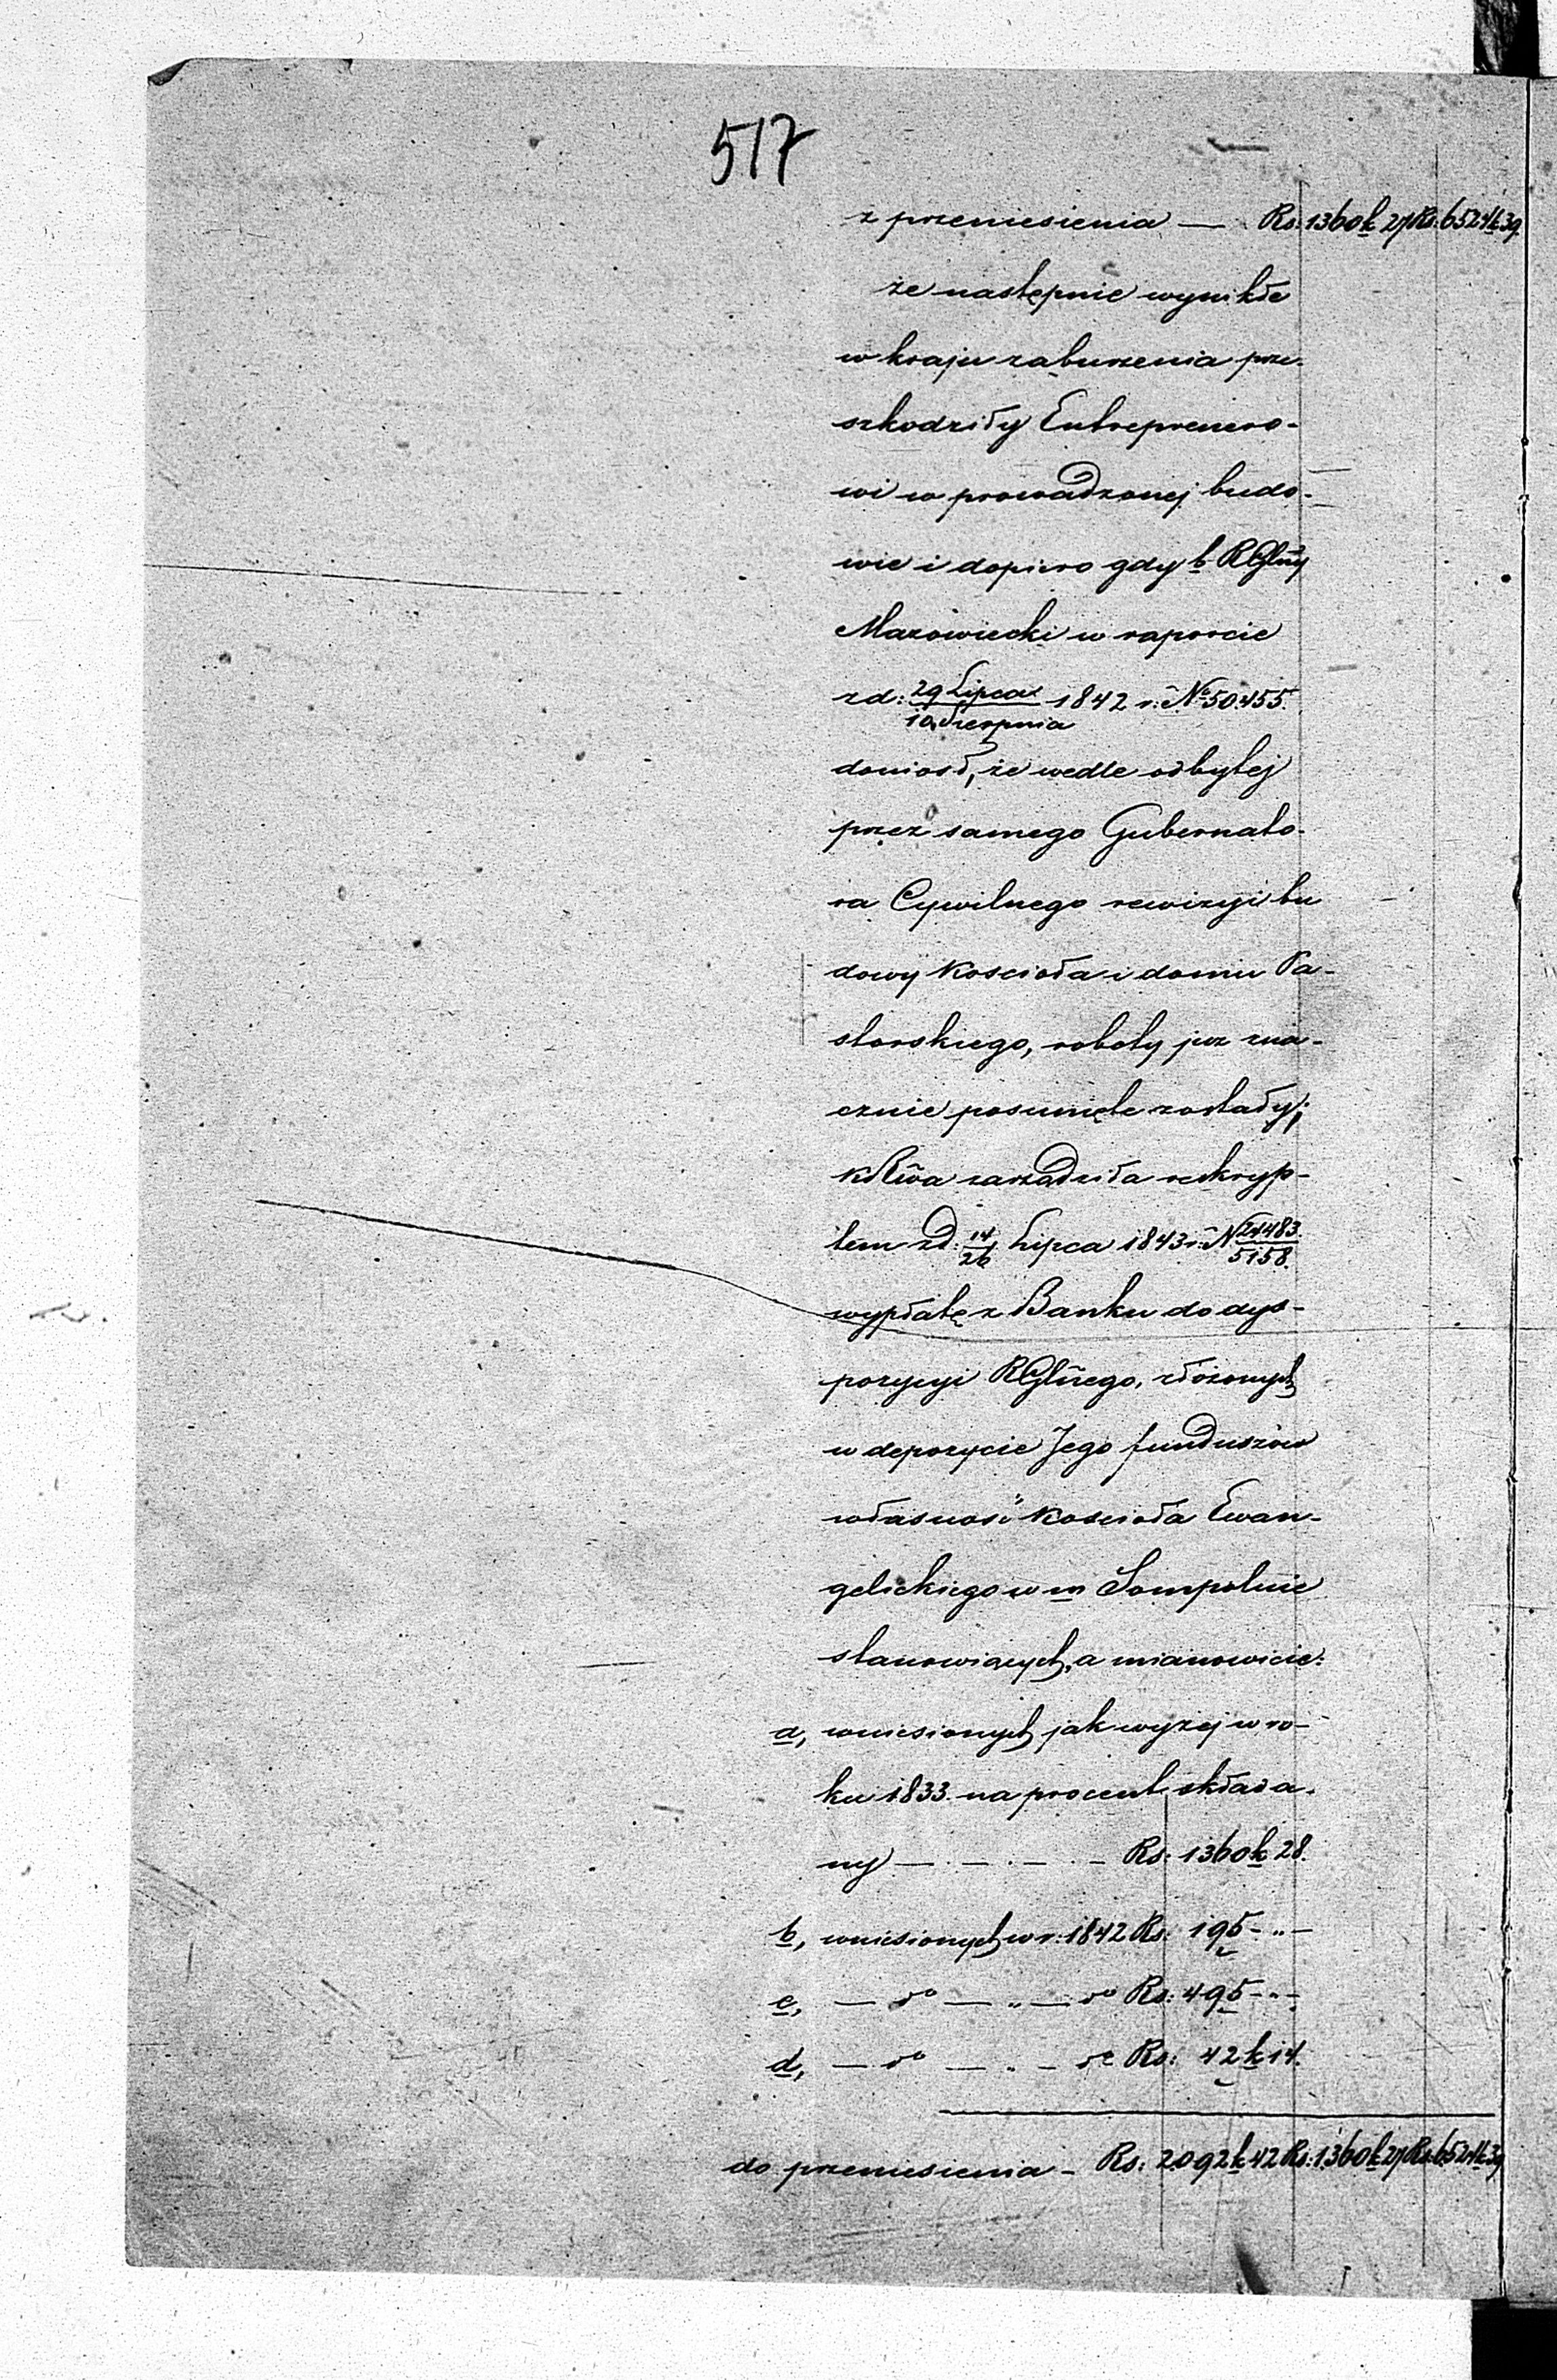 517
z przeniesienia — Rs. 1360 k 27 Rs. 6524 k 39.
że następnie wynikłe
w kraju zaburzenia prze-
szkodziły Entreprenero-
wi w prowadzonej budo-
wie i dopiero gdy b. RGlny
Mazowiecki w raporcie
zd: 29 Lipca/10 Sierpnia 1842 r: No 50,455.
doniosł, że wedle odbytej
przez samego Gubernato-
ra Cywilnego rewizyi bu
dowy Kościoła i domu Pa-
storskiego, roboty już zna-
cznie posunięte zostały;
KRwa zarządziła reskryp-
tem zd: 14/26 Lipca 1843 r: N 24483/5158.
wypłatę z Banku do dys-
pozycyi RGlnego, złożonych
w depozycie Jego funduszów
własność Kościoła Ewan-
gelickiego w m Sompolnie
stanowiących, a mianowicie:
a, wniesionych jak wyżej w ro-
ku 1833. na procent składa.
ny — . — . — . — Rs: 1360 k 28.
b, wniesionych w r: 1842 Rs: 195 - " -
c, — do — " — do Rs: 495 - " -
d, — do — " — do Rs: 42 k 14.
do przeniesienia - Rs: 2092 k 42 Rs: 1360 k 27 Rs. 6524 k 39